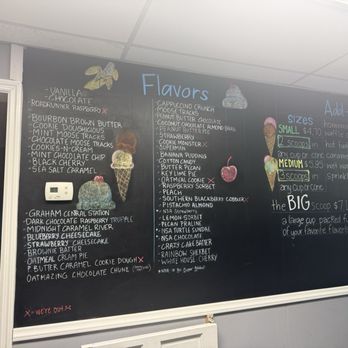 Flavors
-VANILLA
CHOCOLATE
-ROADRUNNER RASPBERRY X
-BOURBON BROWN BUTTER
-COOKIE DOUGHLICIOUS
-MINT MOOSE TRACKS
-CHOCOLATE MOOSE TRACKS
-COOKIES-N-CREAM
-MINT CHOCOLATE CHIP
-BLACK CHERRY
-SEA SALT CARAMEL
-GRAHAM CENTRAL STATION
-DARK CHOCOLATE RASPBERRY TRUFFLE
-MIDNIGHT CARAMEL RIVER
-BLUEBERRY CHEESECAKE
-STRAWBERRY CHEESECAKE
-BROWNIE BATTER
-OATMEAL CREAM PIE
-P. BUTTER CARAMEL COOKIE DOUGH X
-OATMAZING CHOCOLATE CHUNK
X-WE'RE OUT
-CAPPUCCINO CRUNCH
-MOOSE TRACKS
-PEANUT BUTTER CHOCOLATE
-COCONUT CHOCOLATE ALMOND BARK
-PEANUT BUTTER PIE
-STRAWBERRY
-COOKIE MONSTER X
-SUPERMAN
-BANANA PUDDING
-COTTON CANDY
-BUTTER PECAN
-KEY LIME PIE
-OATMEAL COOKIE X
-RASPBERRY SORBET
-PEACH
-SOUTHERN BLACKBERRY COBBLER X
-PISTACHIO ALMOND
-NSA
-LEMON SORBET
-PECAN PRALINE
-NSA TURTLE SUNDAE
-NSA CHOCOLATE
-CRAZY CAKE BATTER
-RAINBOW SHERBET
-WHITE HOUSE CHERRY
SIZES
SMALL
2 scoops in
any cup or cone
MEDIUM
3 scoops in
any cup or cone
the BIG scoop
a large cup packed
of your favorite
Add